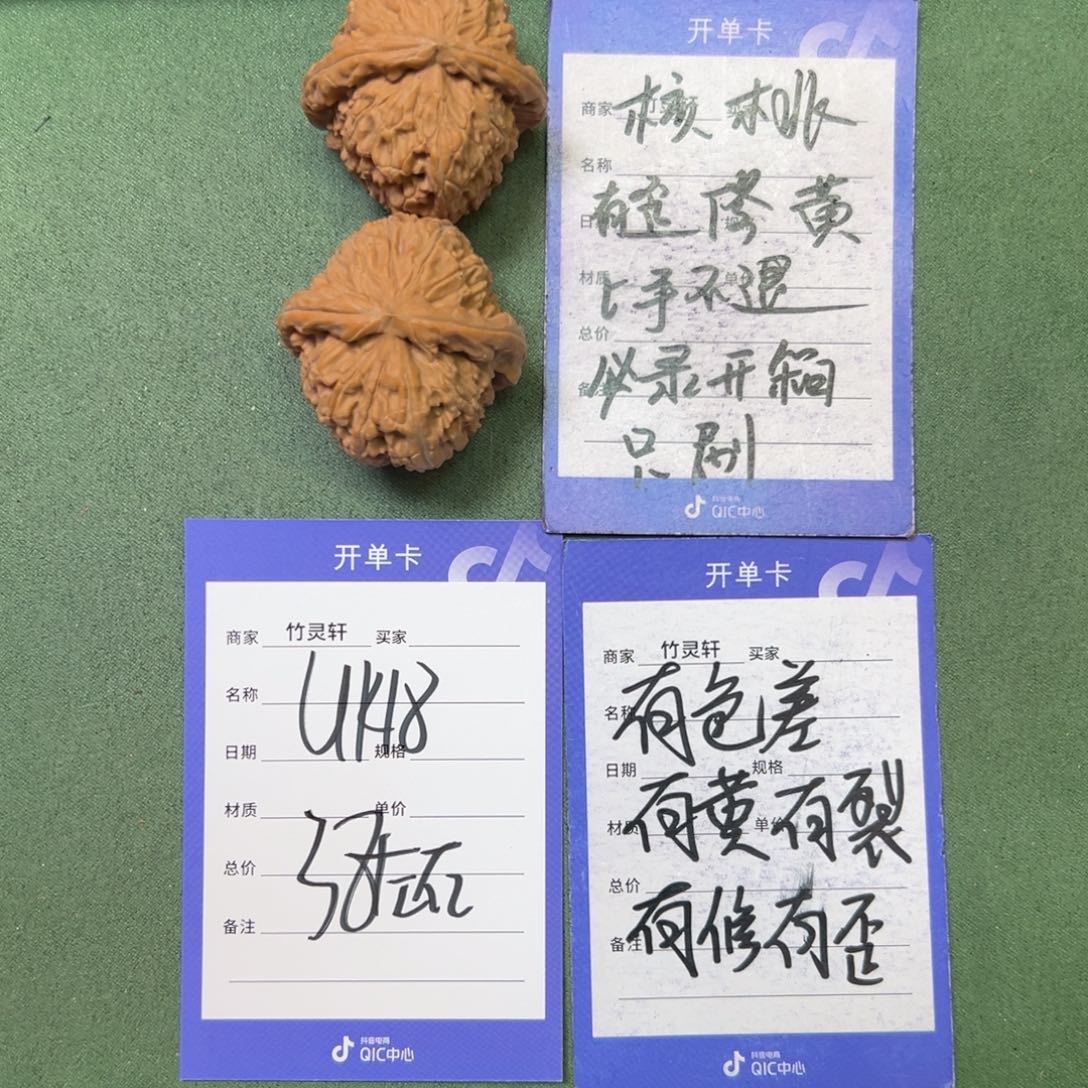 开单卡
商家 竹灵轩 买家
核桃
名称
有歪修黄
日期 规格
材质 单价
上手不退
总价
必录开箱
备注
只刷
抖音电商
QIC中心
开单卡
商家 竹灵轩 买家
名称
UK48
日期 规格
材质 单价
总价
备注
抖音电商
QIC中心
开单卡
商家 竹灵轩 买家
名称
有色差
日期 规格
有黄有裂
材质 单价
总价
备注
有修有歪
抖音电商
QIC中心